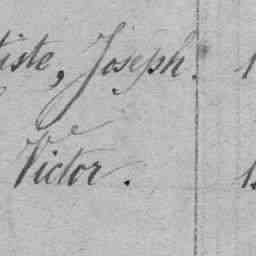 tiste, Joseph. 1
Victor. 1